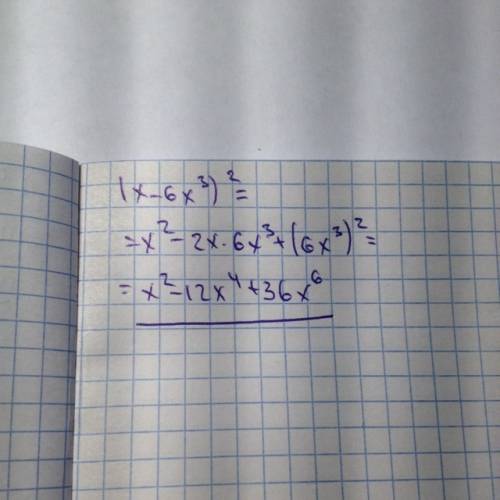 (x-6x³)²=
=x²-2x·6x³+(6x³)²=
=x²-12x⁴+36x⁶